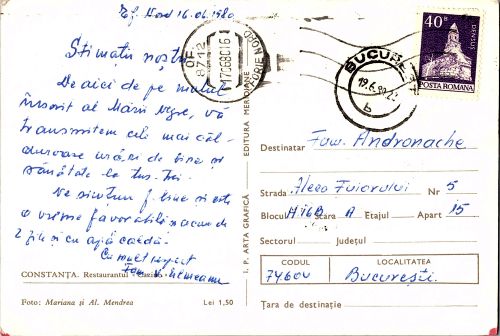 Ef. Nord 16.06.1980
Stimații noștri
De aici de pe malul
însorit al Mării Negre, vă
transmitem cele mai căl-
duroase urări de bine și
sănătate la toți trei.
Ne simțim f. bine și este
o vreme favorabilă acum de
2 zile și cu apă caldă.
Cu mult respect
Fam.
CONSTANȚA. Restaurantul Cazino
Foto: Mariana și Al. Mendrea
Lei 1,50
I. P. ARTA GRAFICĂ
EDITURA MERIDIANE
OF.
8712
17.6.80.16
FORIE NORD
BUCUREȘTI
19.6.80.
b
40 B
DENSUȘ
POSTA ROMANA
Destinatar Fam. Andronache
Strada Aleea Fuiorului Nr 5
Blocul H16B Scara A Etajul Apart 15
Sectorul Județul
CODUL
74600
LOCALITATEA
București.
Țara de destinație